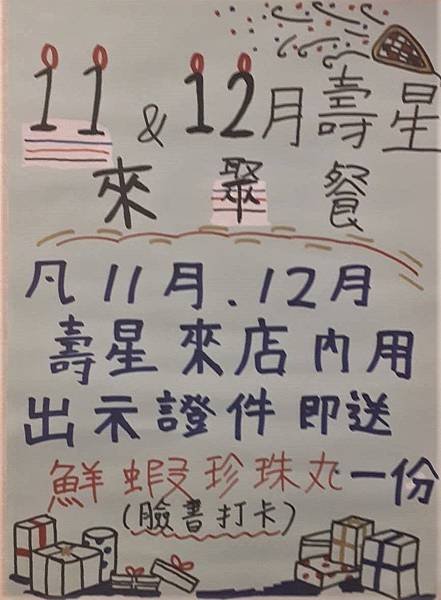 11&12月壽星
來聚餐
凡11月.12月
壽星來店內用
出示證件即送
鮮蝦珍珠丸一份
(臉書打卡)